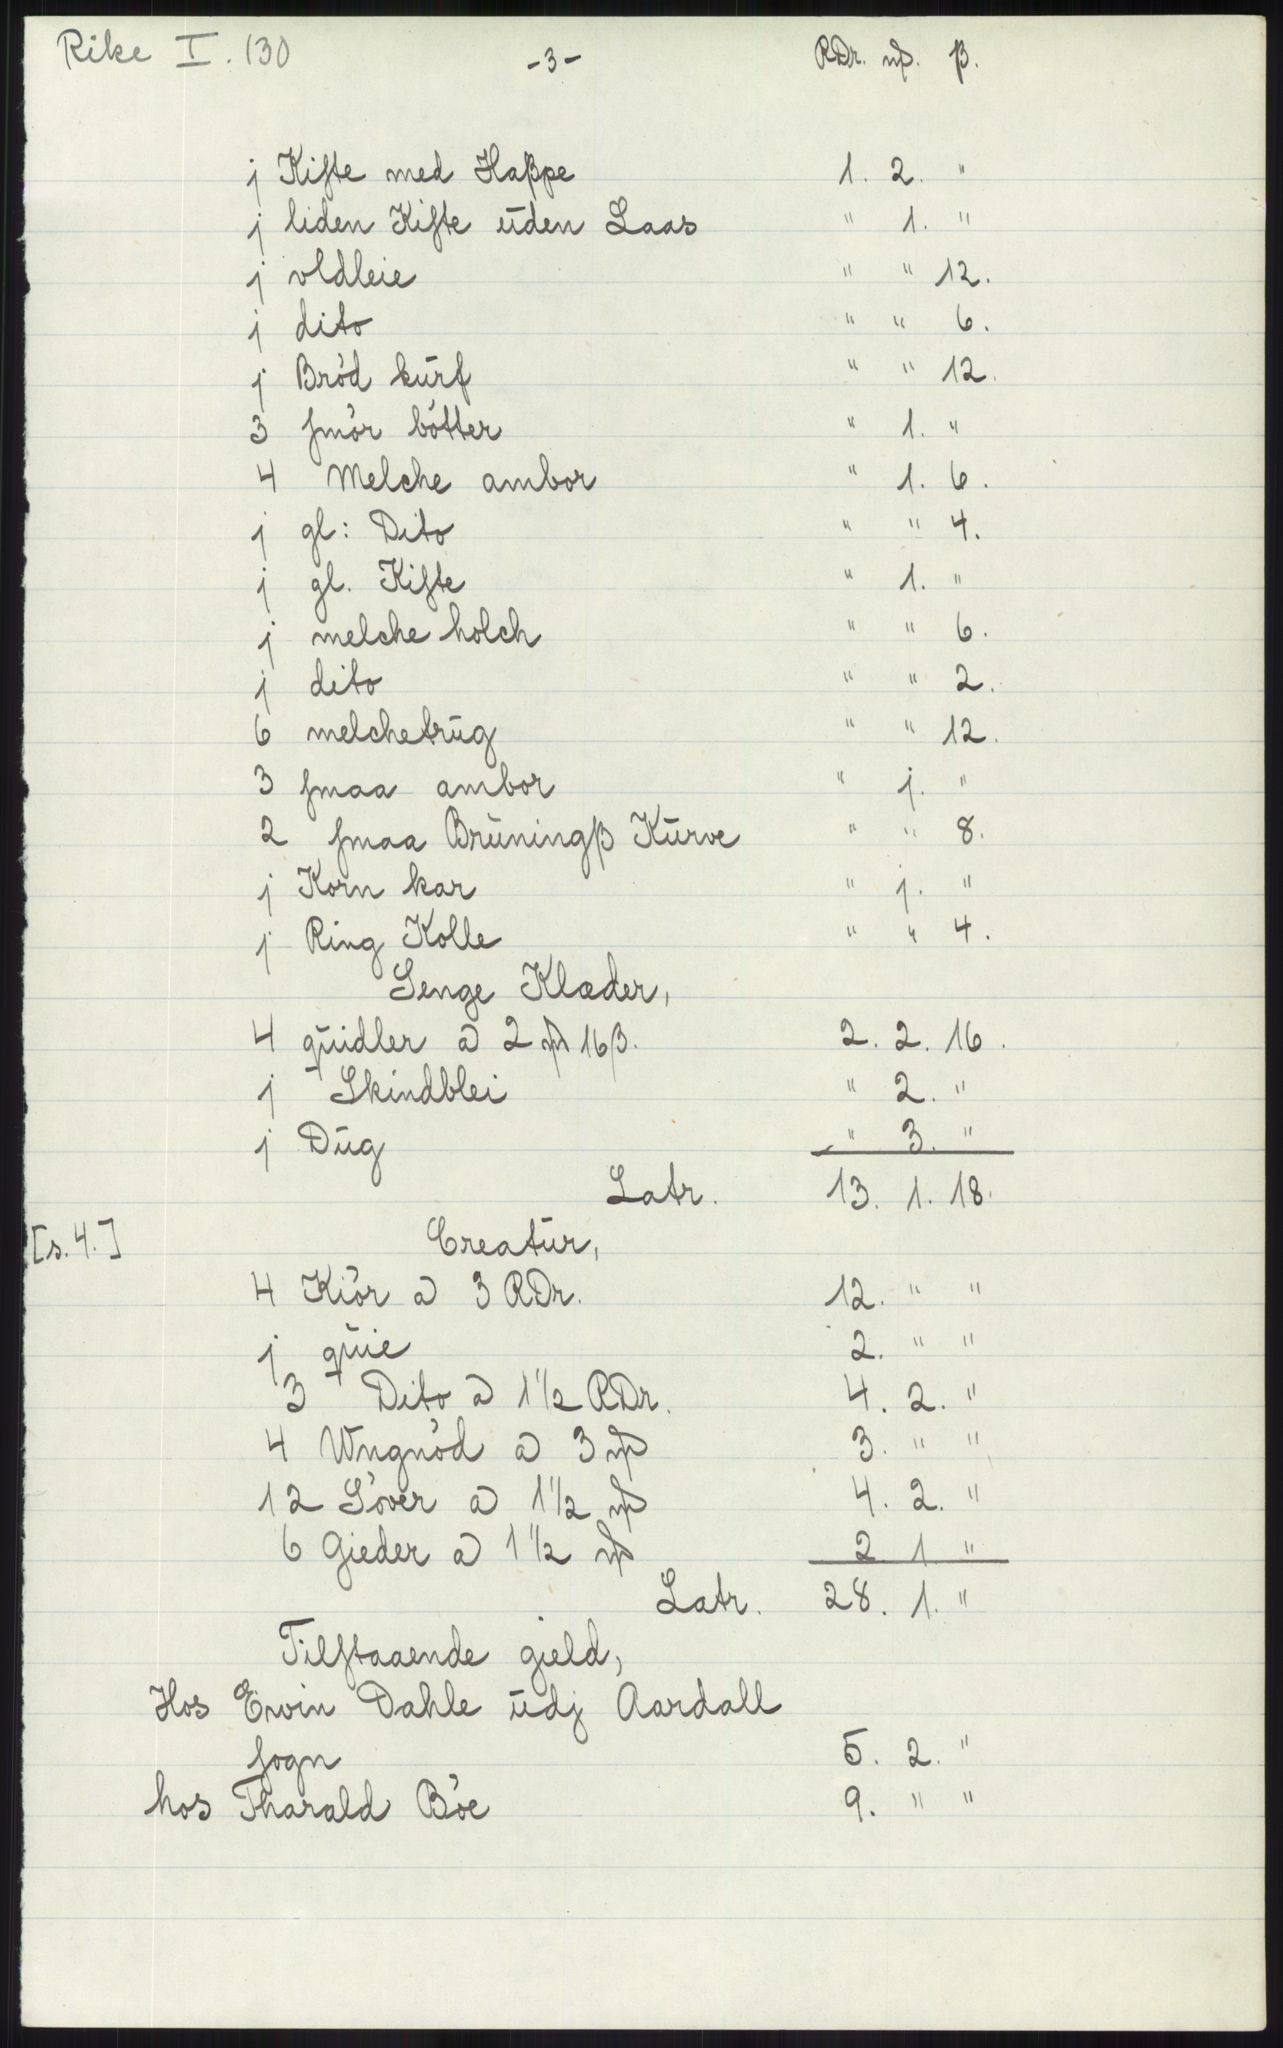 Rike I. 130
-3-
RDr. mß. β.
j Kiste med Haßpe 1. 2. "
j liden Kiste ūden Laas " 1. "
j vldleie " " 12.
j dito " " 6.
j Brød kūrf " " 12.
3 smør bøtter " 1. "
4 Melche ambor " 1. 6.
j gl: Dito " " 4.
j gl. Kiste " 1. "
j melche holch " " 6.
j dito " " 2.
6 melchetrūg " " 12.
3 smaa ambor " j. "
2 smaa Brūningß Kūrve " " 8.
j Korn kar " j. "
j Ring Kolle " " 4.
Senge Klæder,
4 qūidler a 2 mß 16β. 2. 2. 16.
j Skindblei " 2. "
j Dūg " 3. "
Latr. 13. 1. 18.
[s. 4.] Creatūr,
4 Kiør a 3 RDr. 12. " "
j qūie 2. " "
3 Dito a 1 1/2 RDr. 4. 2. "
4 Vngnød a 3 mß 3. " "
12 Søver a 1 1/2 mß 4. 2. "
6 Gieder a 1 1/2 mß 2 1 "
Latr. 28. 1. "
Tilstaaende gield,
Hos Ewin Dahle ūdj Aardall
sogn 5. 2. "
hos Tharald Bøe 9. " "